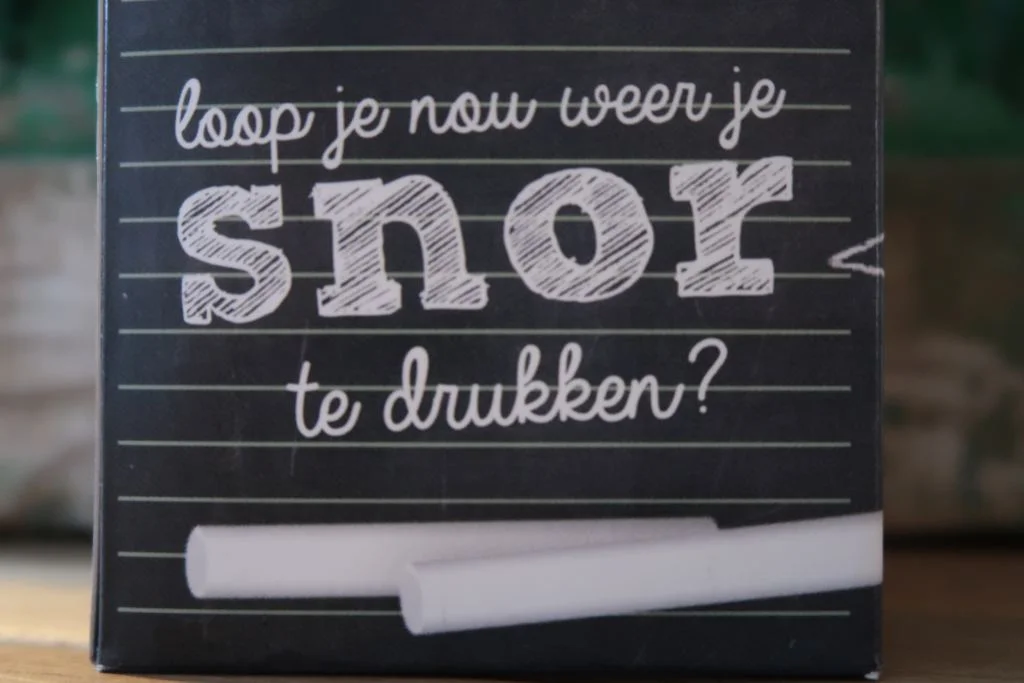 loop je nou weer je
snor
te drukken?